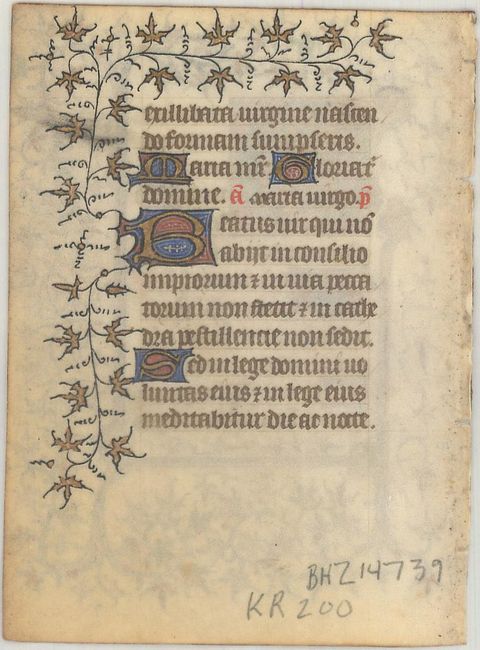 exillibata uirgine nascen
do formam sumpseris.
Maria mr̄ Gloria t̄
domine. aᷓ Maria uirgo. p̄
Beatus uir qui nō
abijt in consilio
impiorum ⁊ in uia pecca
torum non stetit ⁊ in cathe
dra pestillencie non sedit.
Sed in lege domini uo
luntas eius ⁊ in lege eius
meditabitur die ac nocte.
BHZ14739
KR 200